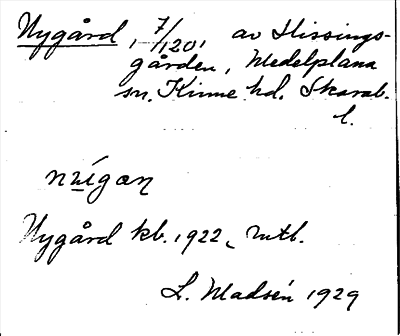 Nygård, 7/120, av Hissings-
gården, Medelplana
sn. Kinne hd. Skarab.
l.
nuígaɳ
Nygård kb. 1922, rutb.
L. Madsén 1929